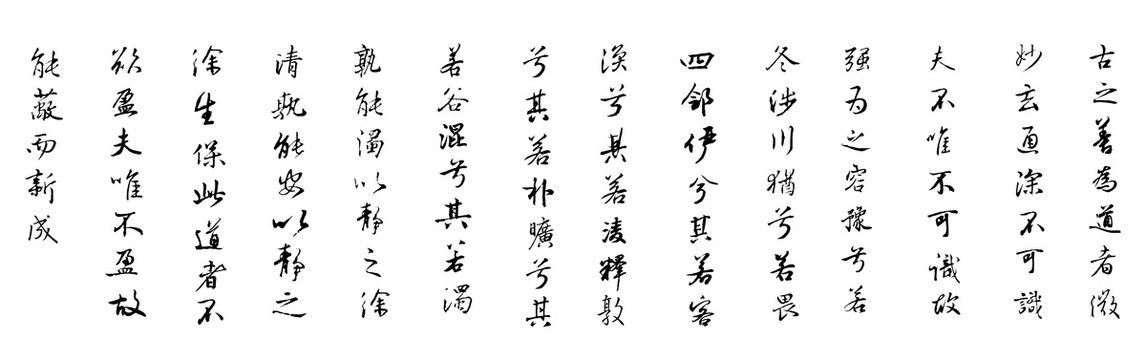 古之善為道者微
妙玄通深不可識
夫不唯不可識故
强为之容豫兮若
冬涉川猶兮若畏
四鄰伊兮其若客
渙兮其若凌釋敦
兮其若朴曠兮其
若谷混兮其若濁
孰能濁以靜之徐
清孰能安以靜之
徐生保此道者不
欲盈夫唯不盈故
能蔽而新成